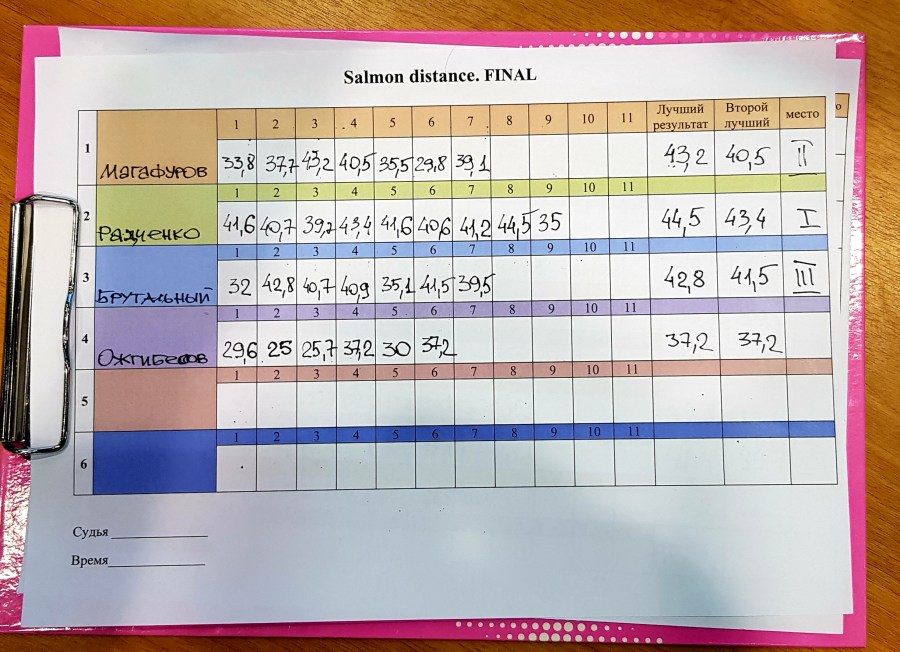 Salmon distance. FINAL
1 2 3 4 5 6 7 8 9 10 11 Лучший результат Второй лучший место
1 Магафуров 33,8 37,7 43,2 40,5 35,5 29,8 39,1 43,2 40,5 II
1 2 3 4 5 6 7 8 9 10 11
2 Радченко 41,6 40,7 39,2 43,4 41,6 40,6 41,2 44,5 35 44,5 43,4 I
1 2 3 4 5 6 7 8 9 10 11
3 Брутальный 32 42,8 40,7 40,9 35,1 41,5 39,5 42,8 41,5 III
1 2 3 4 5 6 7 8 9 10 11
4 Ожгибесов 29,6 25 25,7 37,2 30 37,2 37,2 37,2
1 2 3 4 5 6 7 8 9 10 11
5
1 2 3 4 5 6 7 8 9 10 11
6
Судья
Время